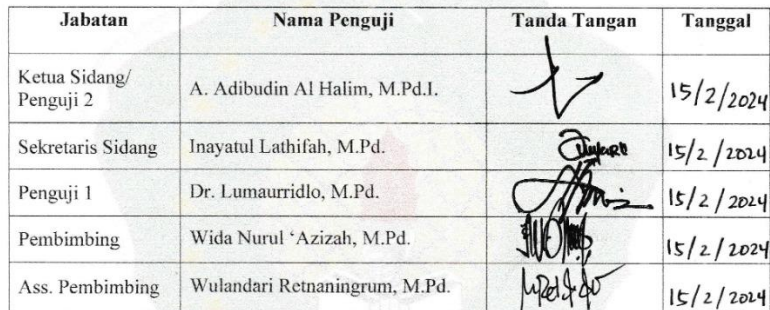 Jabatan Nama Penguji Tanda Tangan Tanggal
Ketua Sidang/
Penguji 2 A. Adibudin Al Halim, M.Pd.I. 15/2/2024
Sekretaris Sidang Inayatul Lathifah, M.Pd. 15/2/2024
Penguji 1 Dr. Lumaurridlo, M.Pd. 15/2/2024
Pembimbing Wida Nurul ‘Azizah, M.Pd. 15/2/2024
Ass. Pembimbing Wulandari Retnaningrum, M.Pd. 15/2/2024